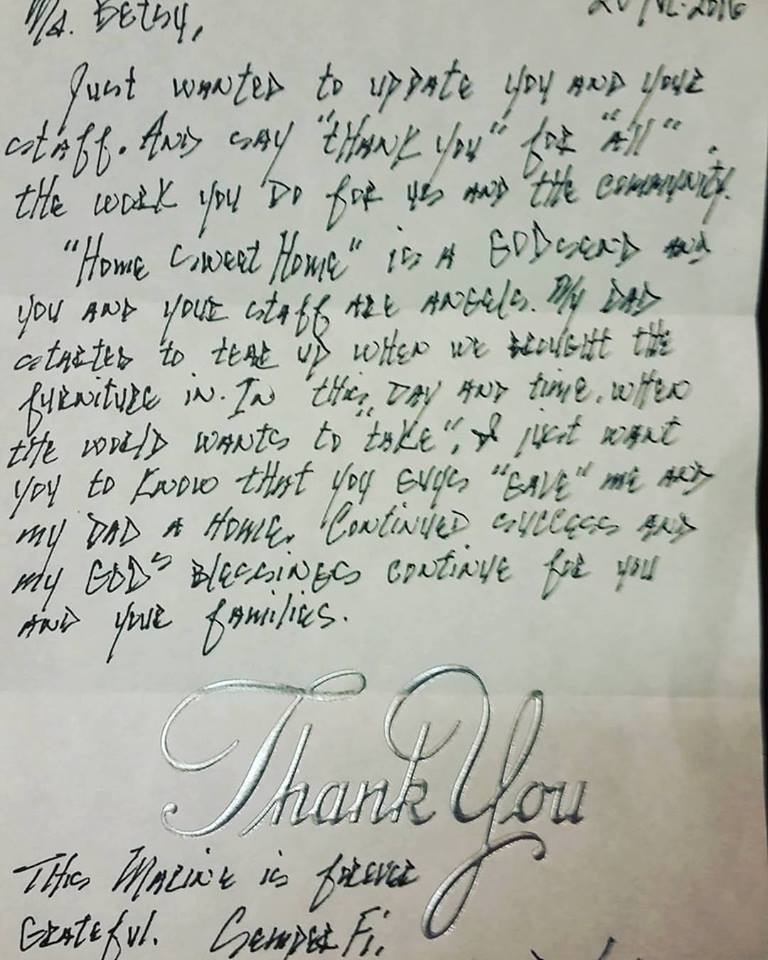 Ms. Betsy,
Just wanted to update you and your
staff. And say "thank you" for "all"
the work you do for us and the community.
"Home Sweet Home" is a Godsend and
you and your staff are angels. My Dad
started to tear up when we brought the
furniture in. In this day and time, when
the world wants to "take", I just want
you to know that you guys "gave" me and
my Dad a home. Continued success and
my God's blessings continue for you
and your families.
Thank You
This Marine is forever
Grateful. Semper Fi,